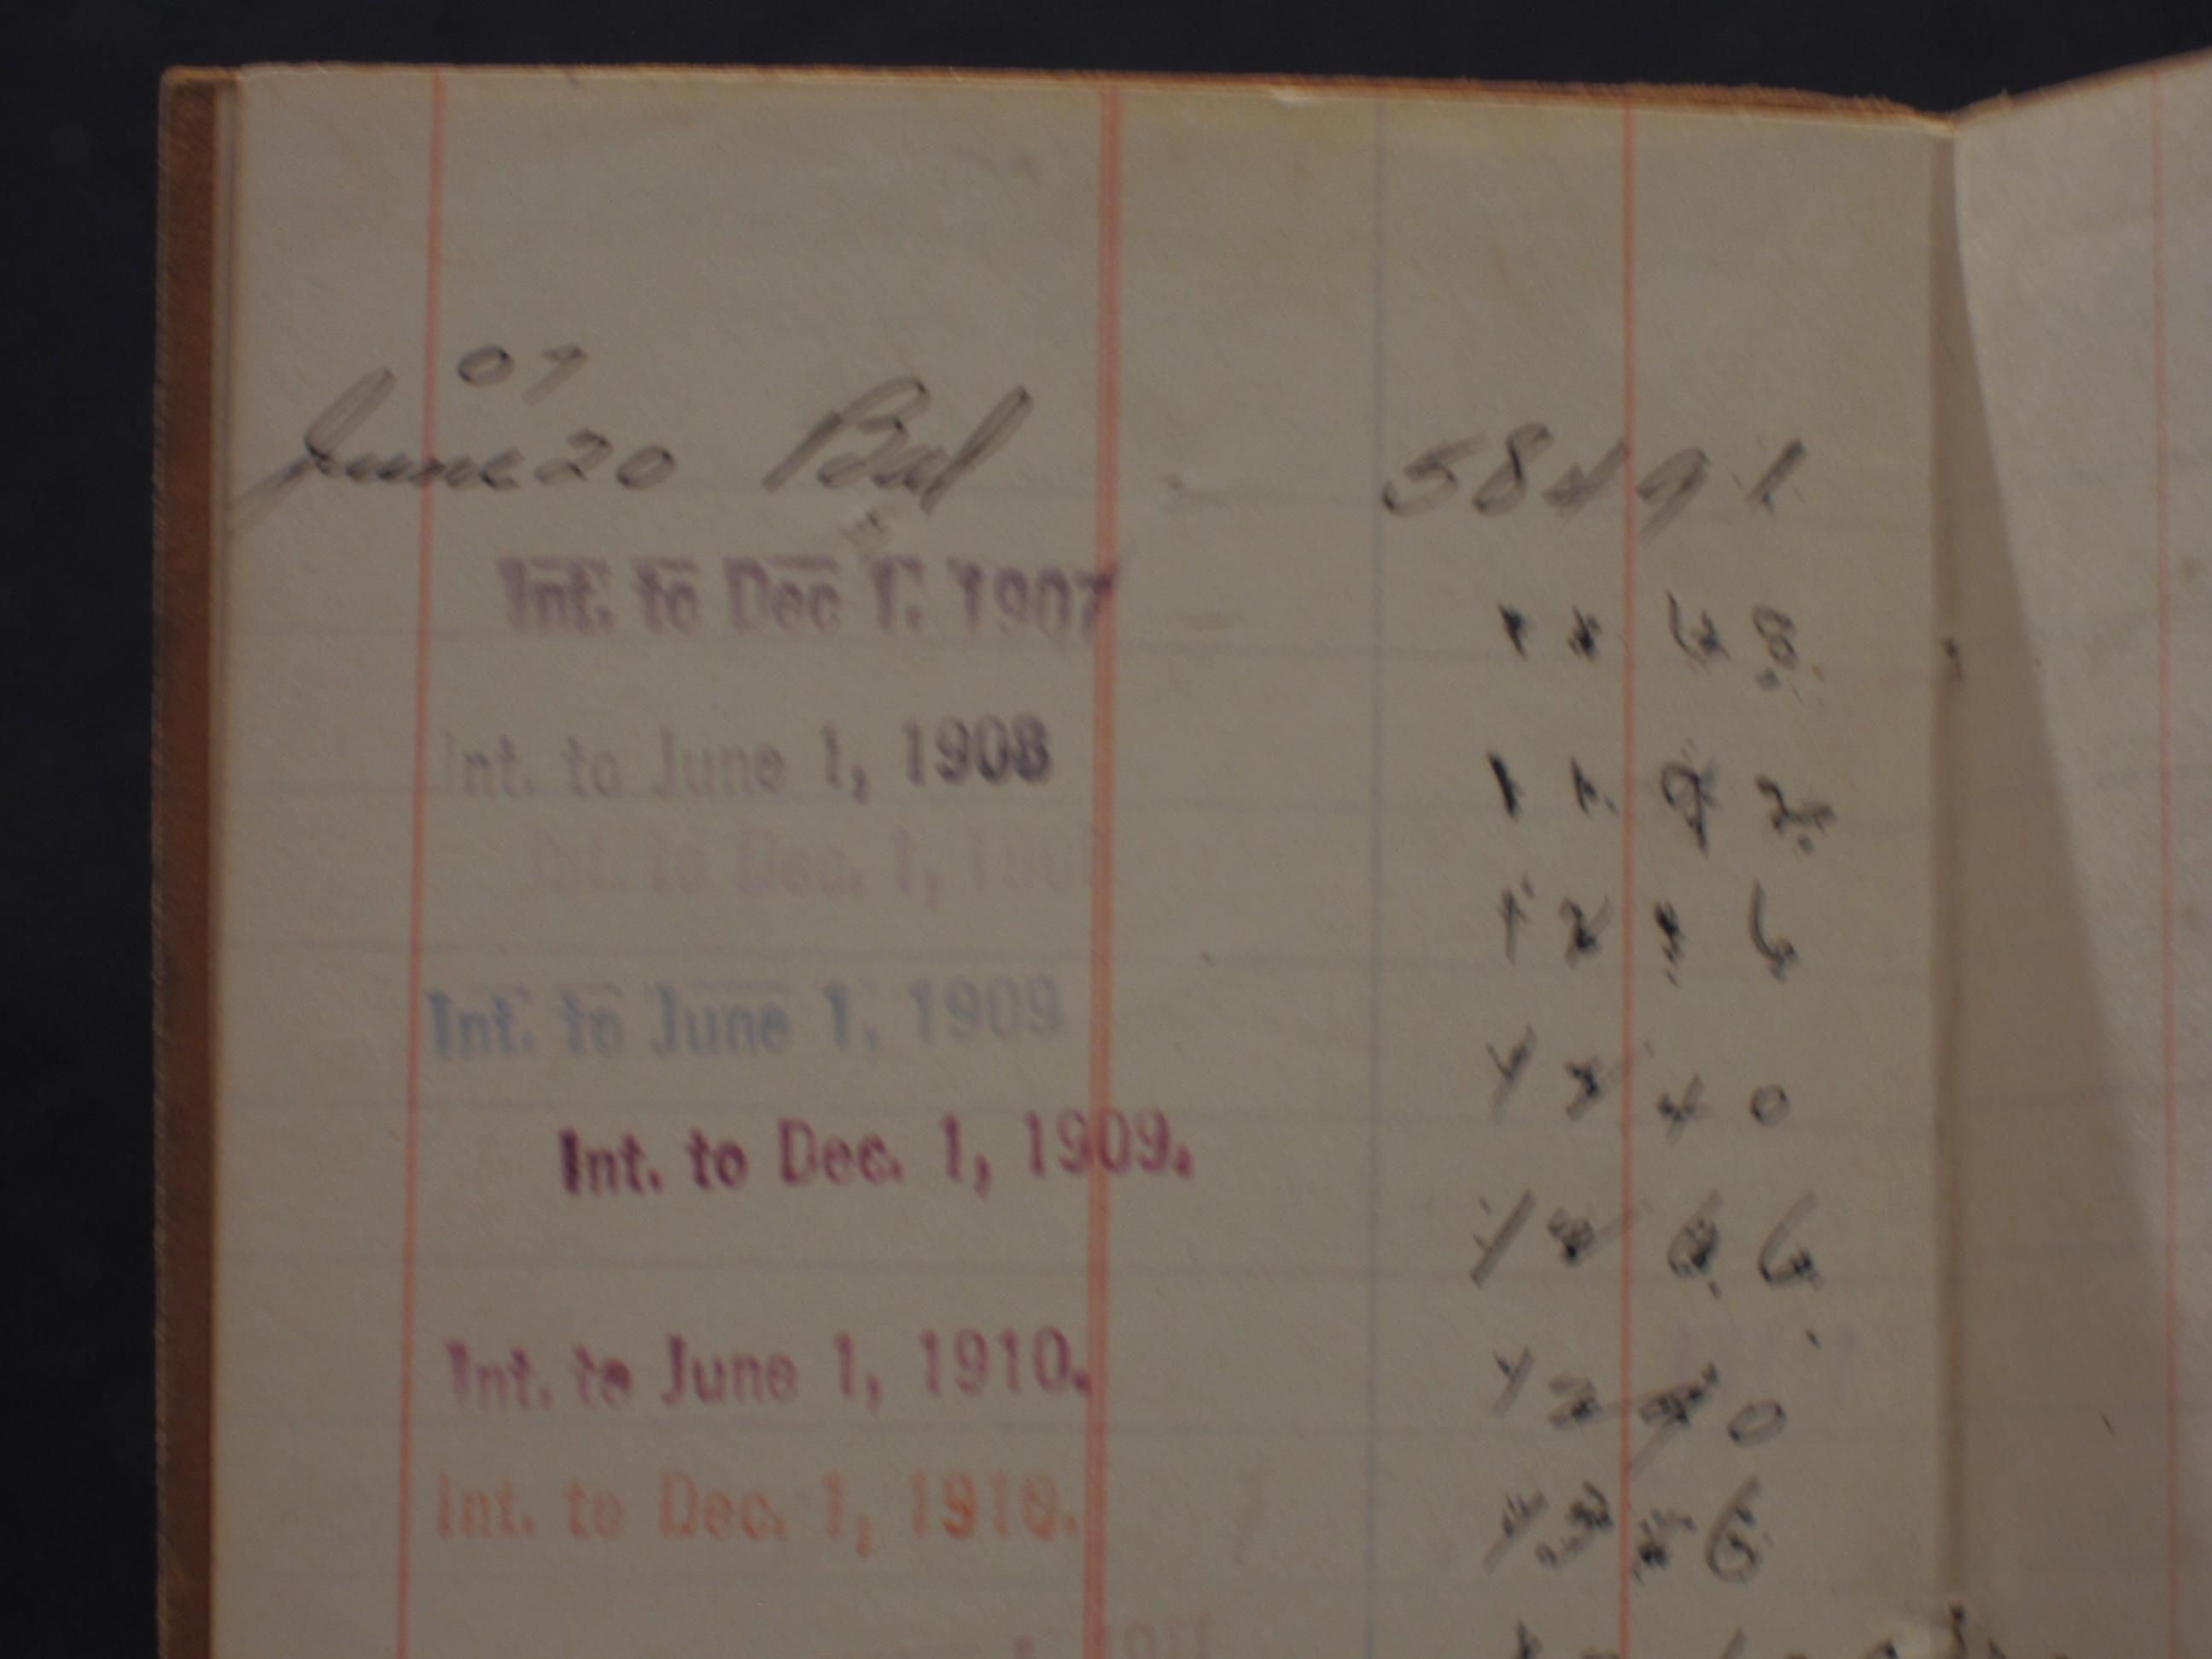 07
June 20 Bal 584 91
Int. to Dec 1. 1907 11 68
Int. to June 1, 1908 11 92
Int. to Dec. 1, 190 12 16
Int. to June 1, 1909 12 40
Int. to Dec. 1, 1909. 12 66
Int. to June 1, 1910. 12 90
Int. to Dec. 1, 1910. 13 16